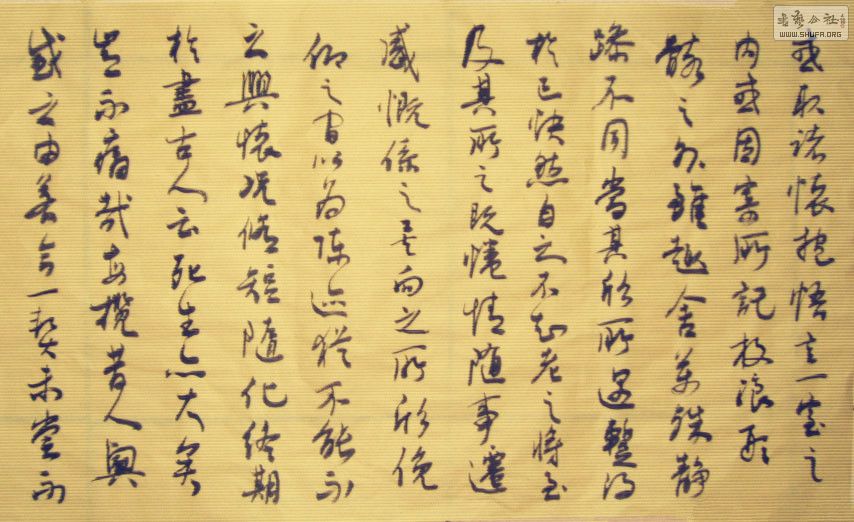 或取诸怀抱悟言一室之
内或因寄所記放浪形
骸之外雖趣舍萬殊静
躁不同當其欣所遇暫得
於己快然自足不知老之将至
及其所之既惓情随事遷
感慨係之矣向之所欣俛
仰之間以為陈迹猶不能不
之興懷况脩短隨化終期
於盡古人云死生亦大矣
豈不痛哉每攬昔人興
感之由若合一契未嘗不
書藝公社
WWW.SHUFA.ORG